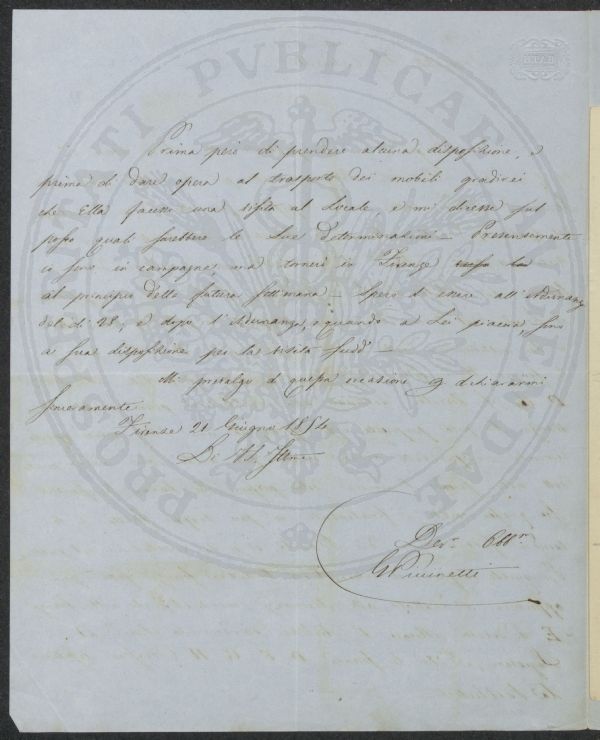 PROSPERITATI PVBLICAE AVGENDAE
Prima però di prendere alcuna disposizione, e
prima di dare opera al trasporto dei mobili gradirei
che Ella facesse una visita al Locale e mi dicesse sul
posto quali sarebbero le Sue Determinazioni — Presentemente
io sono in campagna, ma tornerò in Firenze
al principio della futura settimana — Spero di essere all'Adunanza
del dì 28, e dopo l'Adunanza, o quando a Lei piacerà, sono
a sua disposizione per la visita sudd.ª —
Mi prevalgo di questa occasione p dichiararmi
sinceramente
Firenze 21 Giugno 1854
Di
Dev.º Obb.º